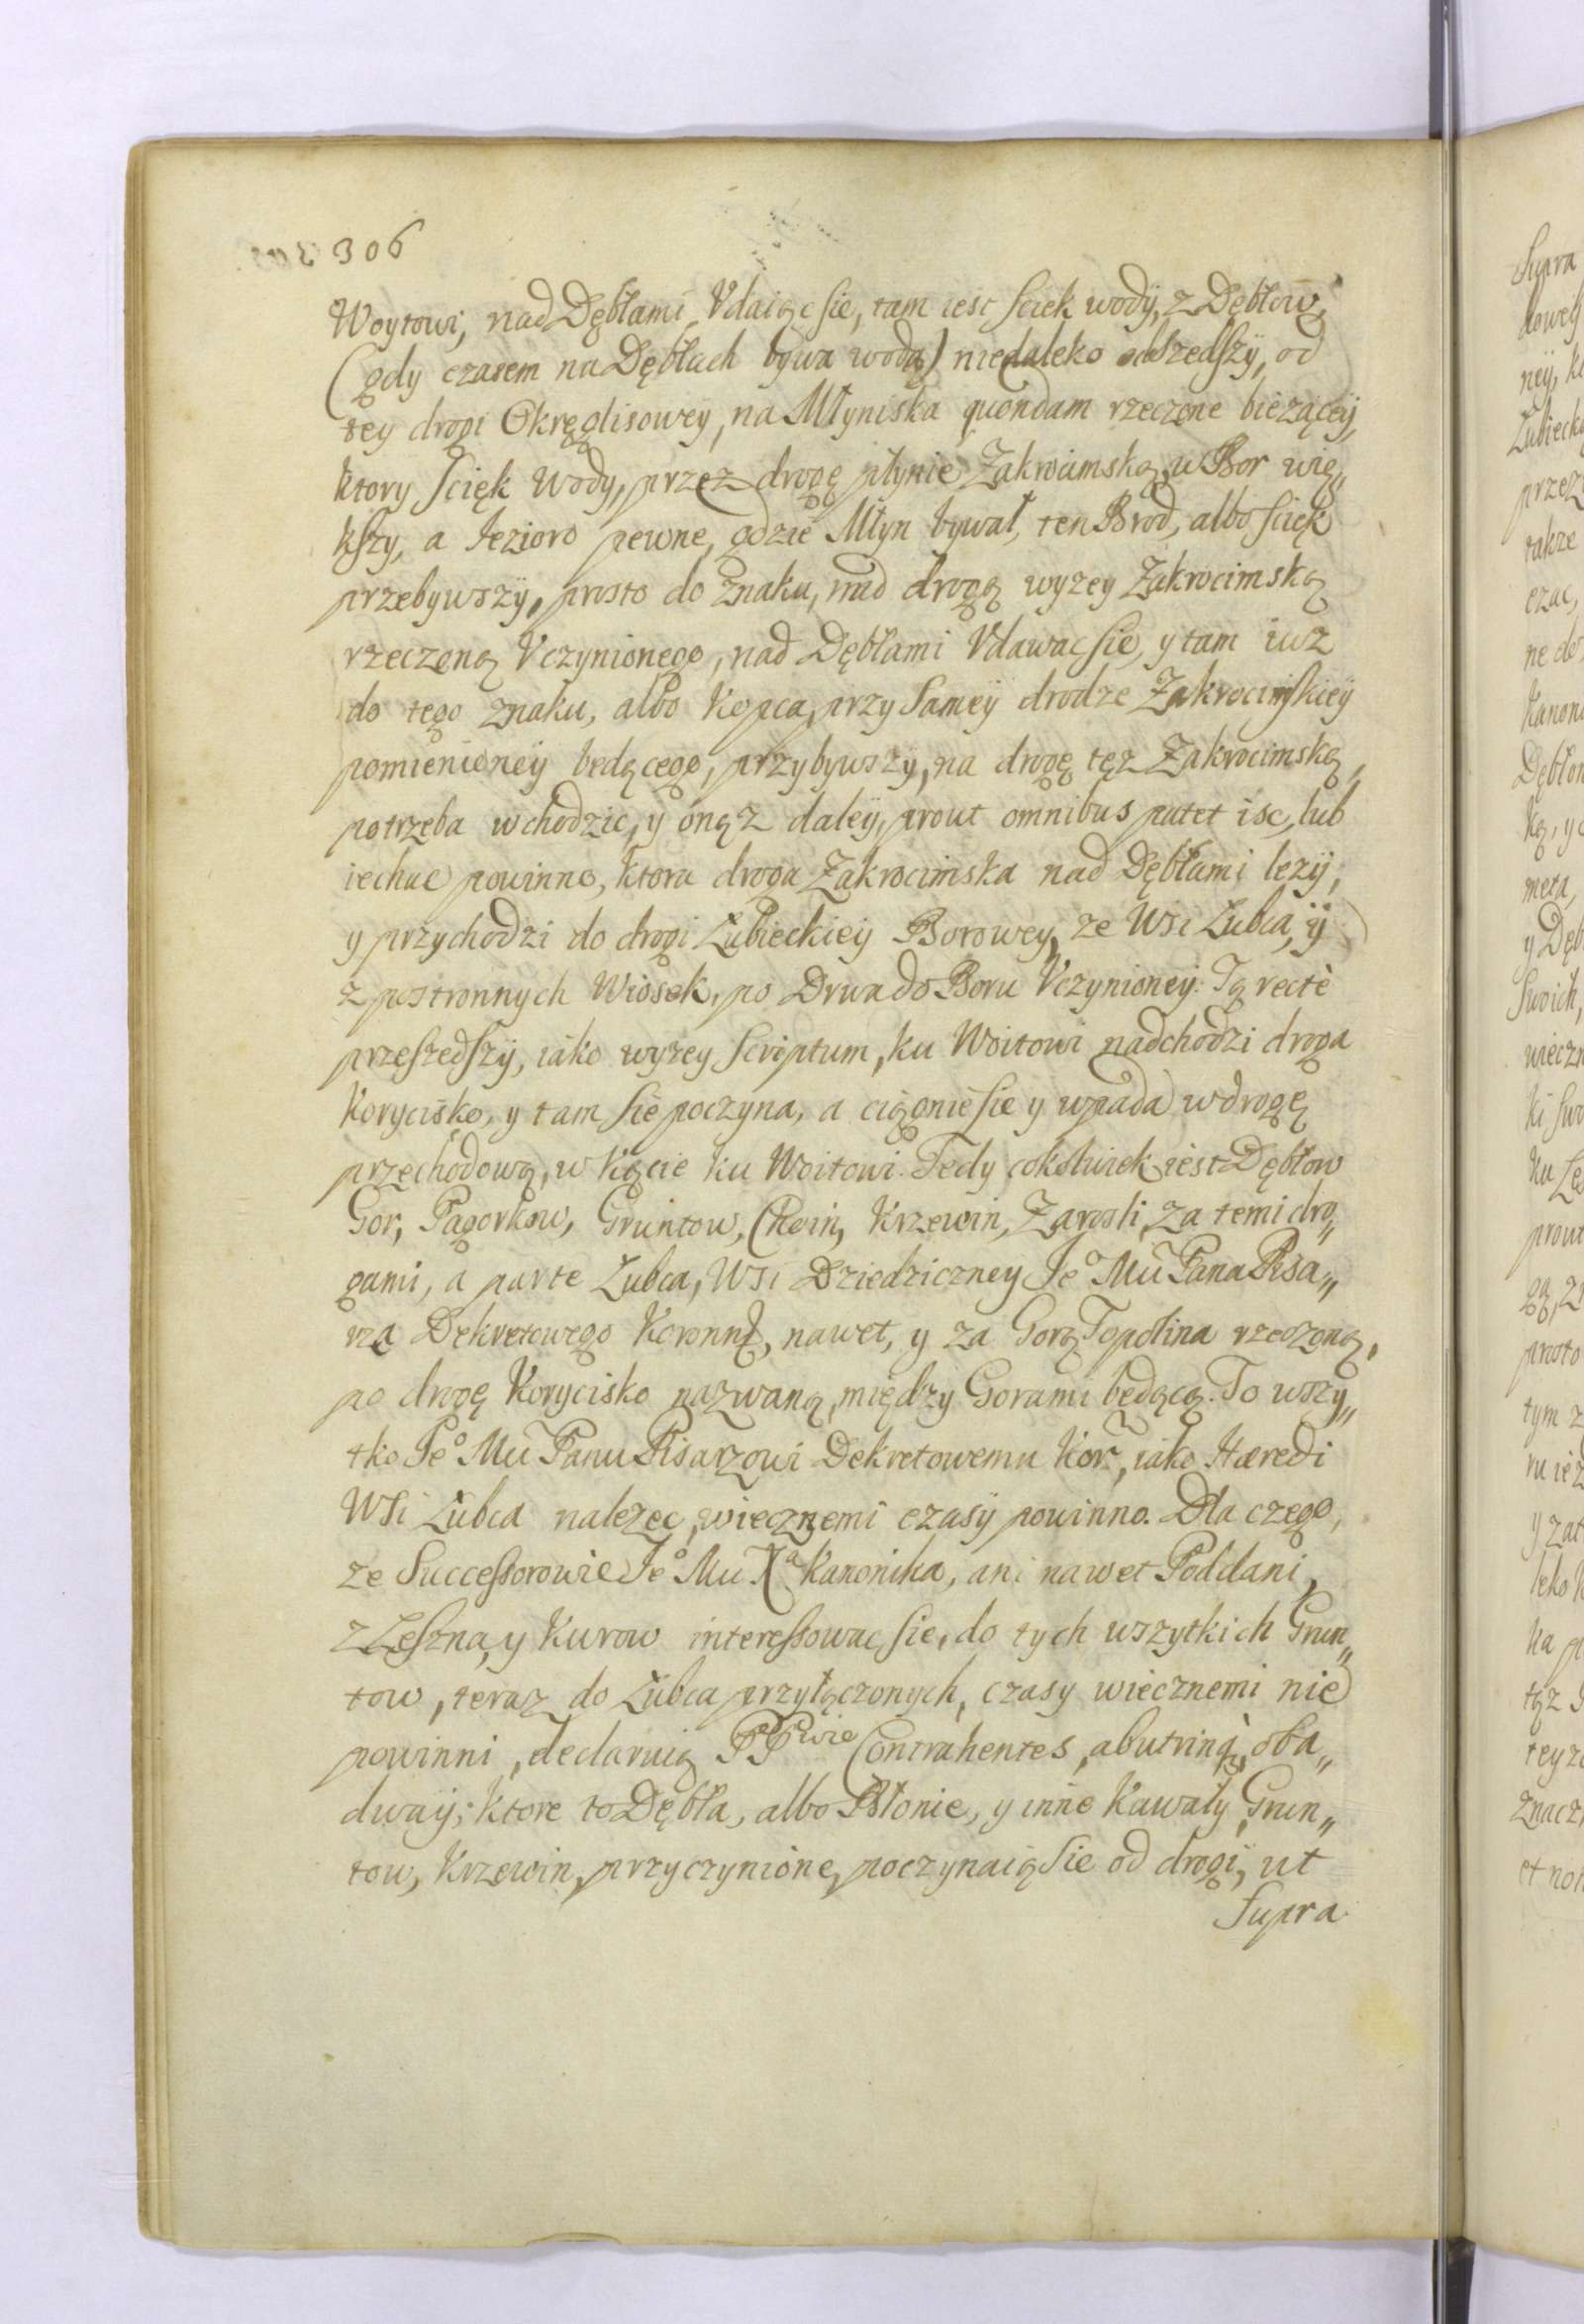 306
Woytowi, nad Dębłami Vdaiąc sie, tam iest sciek wody, z Dębłow,
(gdy czasem na Dębłach bywa woda) niedaleko odszedszÿ, od
tey drogi Okręglisowey, na Młyniska quondam rzeczone bieżąceÿ,
ktory scięk wody, przez drogę płynie Zakrocimską, w Bor wię„
kszy, a Iezioro pewne, gdzie Młyn bywał, ten Brod, albo sciek
przebywszÿ, prosto do znaku, nad drogą wyzey Zakrocimską
rzeczoną Vczynionego, nad Dębłami Vdawac sie, y tam iuz
do tego znaku, albo Kopca, przy Sameÿ drodze Zakrocimskieÿ
pomienioneÿ będącego, przybywszy, na drogę tęz Zakrocimską,
potrzeba wchodzic, y oną z daleÿ, prout omnibus patet isc, lub
iechac powinno, ktora droga Zakrocimska nad Dębłami lezÿ,
y przychodzi do drogi Lubieckieÿ Borowey, ze Wsi Lubca, ÿ
z postronnych Wiosek, po Drwa do Boru Vczynioneÿ. Tą rectè
przeszedszÿ, iako wyzey Scriptum, ku Woitowi nadchodzi droga
Korycisko, y tam sie poczyna, a ciągnie sie y wpada w drogę
przechodową, w kącie ku Woitowi. Tedy cokolwiek iest Dębłow
Gor, Pagorkow, Gruntow, Choin, Krzewin, Zarosli, za temi dro„
gami, a parte Lubca, Wsi Dziedziczney Ie° Mu Pana Pisa„
rza Dekretowego Koronne°, nawet, y za Gorą Topolina rzeczoną,
po drogę Korycisko nazwaną, między Gorami będącą. To wszy„
tko Ie° Mu Panu Pisarzowi Dekretowemu Kor, iako Hæredi
Wsi Lubca nalezec, wiecznemi czasÿ powinno. Dla czego,
ze Successorowie Ie° Mu Xa Kanonika, ani nawet Poddani,
z Leszna, y Kurow interessowac sie, do tych wszytkich Grun„
tow, teraz do Lubca przyłączonych, czasy wiecznemi nie
powinni, declaruią PPwie Contrahentes, ab utrinq, oba„
dwaÿ; ktore to Dębła, albo Błonie, y inne Kawały Grun„
tow, Krzewin, przyczynione, poczynaią sie od drogi, ut
supra